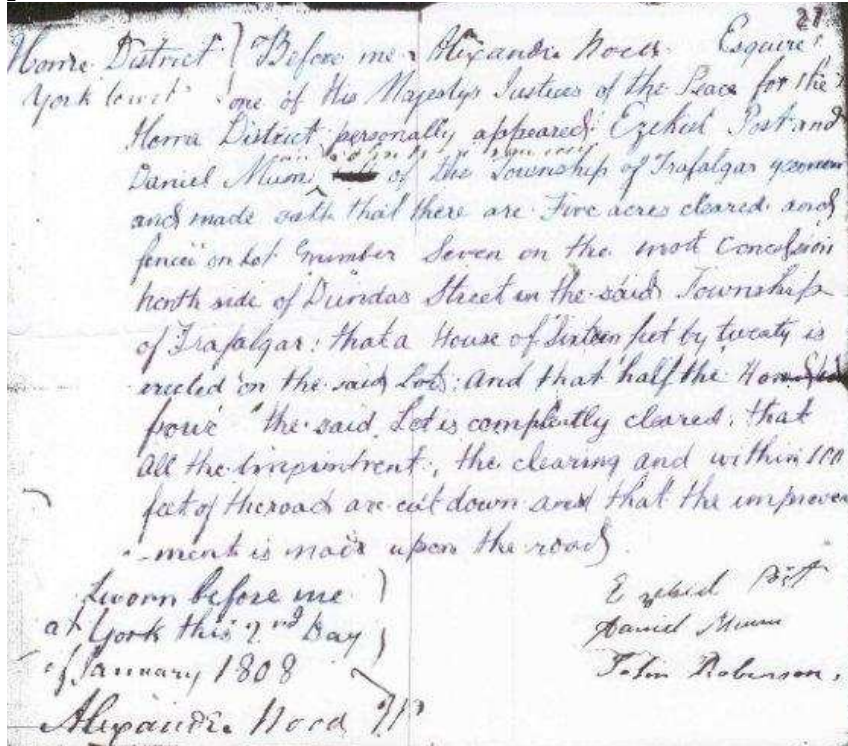 27
Home District } Before me Alexander Wood Esquire
York to wit } one of His Majestys Justices of the Peace for the
Home District personally appeared Ezekiel Post and
Daniel Munn of the Township of Trafalgar yeomen
and made oath that there are Five acres cleared and
fenced on Lot number Seven on the Concession
North side of Dundas Street in the said Township
of Trafalgar: that a House of Sixteen feet by twenty is
erected on the said Lot: And that half the
the said Lot is completly cleared: that
All the the clearing and within 100
feet of the road are cut down and that the improve
-ment is made upon the road
Sworn before me )
at York this 2nd Day )
of January 1808
Ezekiel Post
Daniel Munn
John Robinson.
Alexander Wood JP